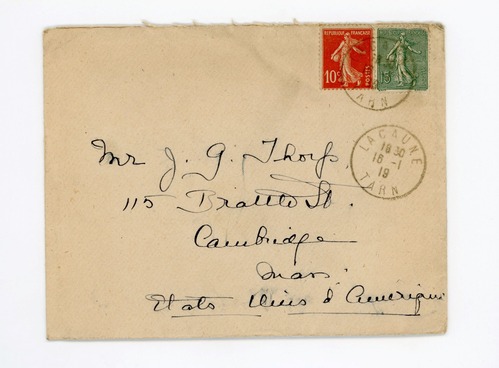 REPUBLIQUE FRANÇAISE
10 c
POSTES
15
TARN
LACAUNE
18 30
16 -1
19
TARN
Mr J. G. Thorp
115 Brattle St.
Cambridge
Mass.
Etats Unis d'Amerique